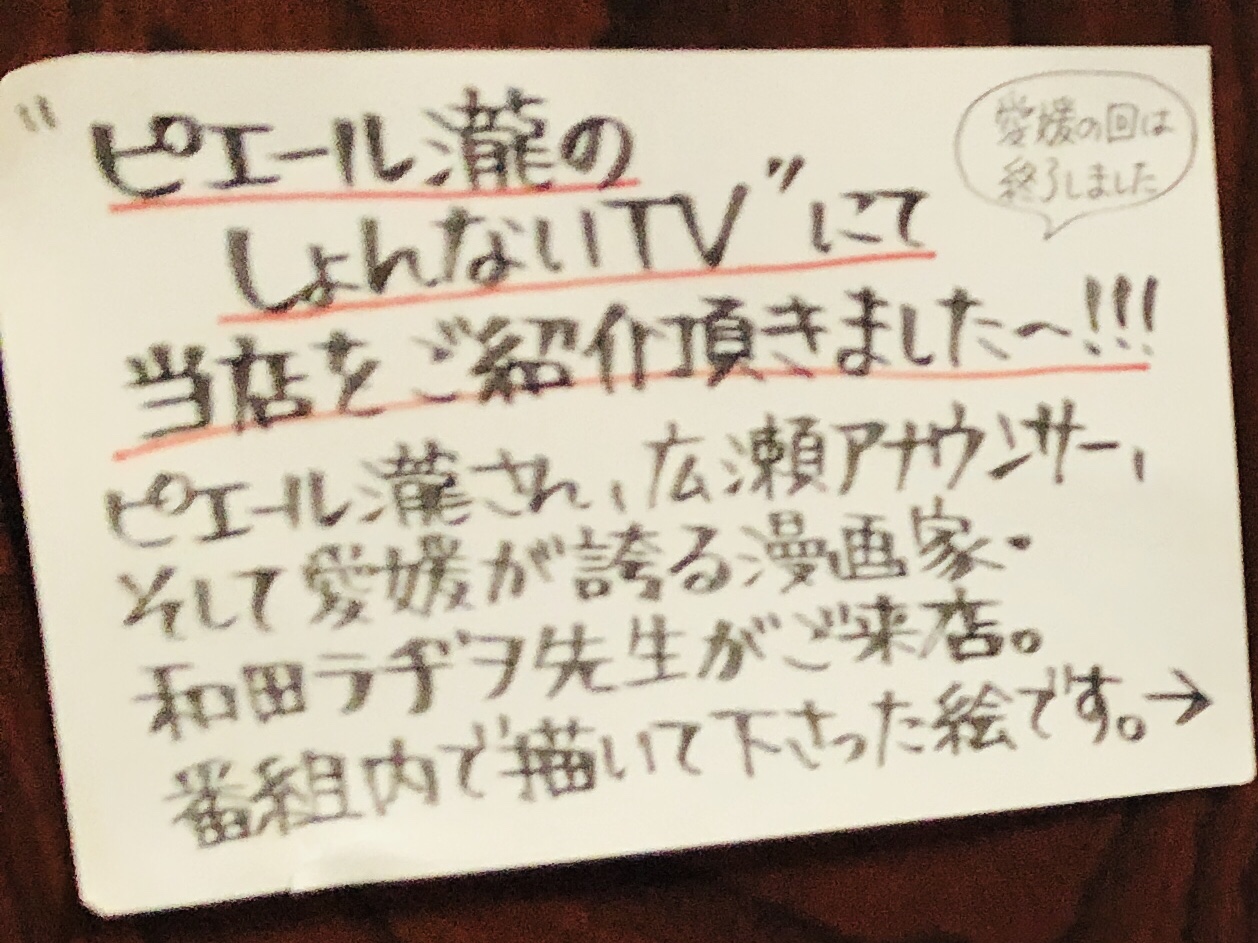 "ピエール瀧の
しょんないTV"にて
当店をご紹介頂きました〜!!!
愛媛の回は
終了しました
ピエール瀧さん、広瀬アナウンサー、
そして愛媛が誇る漫画家・
和田ラヂヲ先生がご来店。
番組内で描いて下さった絵です。→